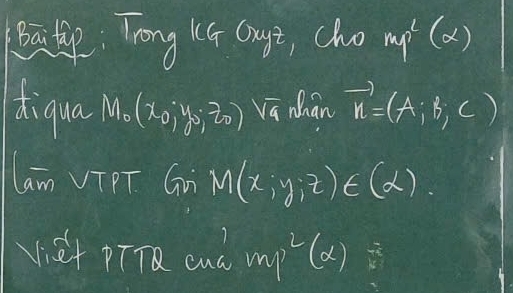 Bài tập: Trong KG Oxyz, cho mp² (α)
đi qua M₀(x₀; y₀; z₀) và nhận n⃗ = (A; B; C)
làm VTPT. Gọi M(x; y; z) ∈ (α).
Viết PTTQ của mp² (α)